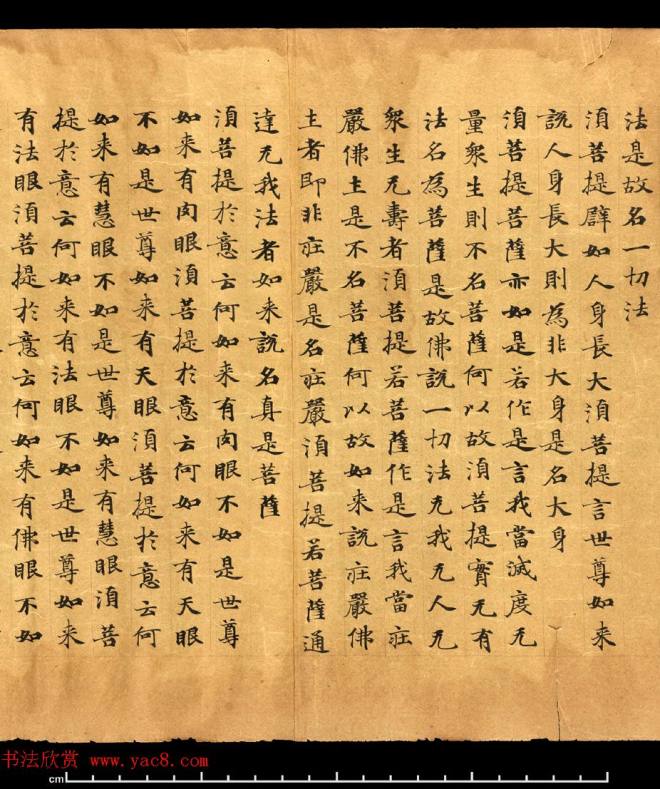 法是故名一切法
湏菩提譬如人身長大湏菩提言世尊如来
說人身長大則為非大身是名大身
湏菩提菩薩亦如是若作是言我當滅度无
量衆生則不名菩薩何以故湏菩提實无有
法名為菩薩是故佛說一切法无我无人无
衆生无壽者湏菩提若菩薩作是言我當莊
嚴佛土是不名菩薩何以故如来說莊嚴佛
土者即非莊嚴是名莊嚴湏菩提若菩薩通
達无我法者如来說名真是菩薩
湏菩提於意云何如来有肉眼不如是世尊
如来有肉眼湏菩提於意云何如来有天眼
不如是世尊如来有天眼湏菩提於意云何
如来有慧眼不如是世尊如来有慧眼湏菩
提於意云何如来有法眼不如是世尊如来
有法眼湏菩提於意云何如来有佛眼不如
书法欣赏 www.yac8.com
cm